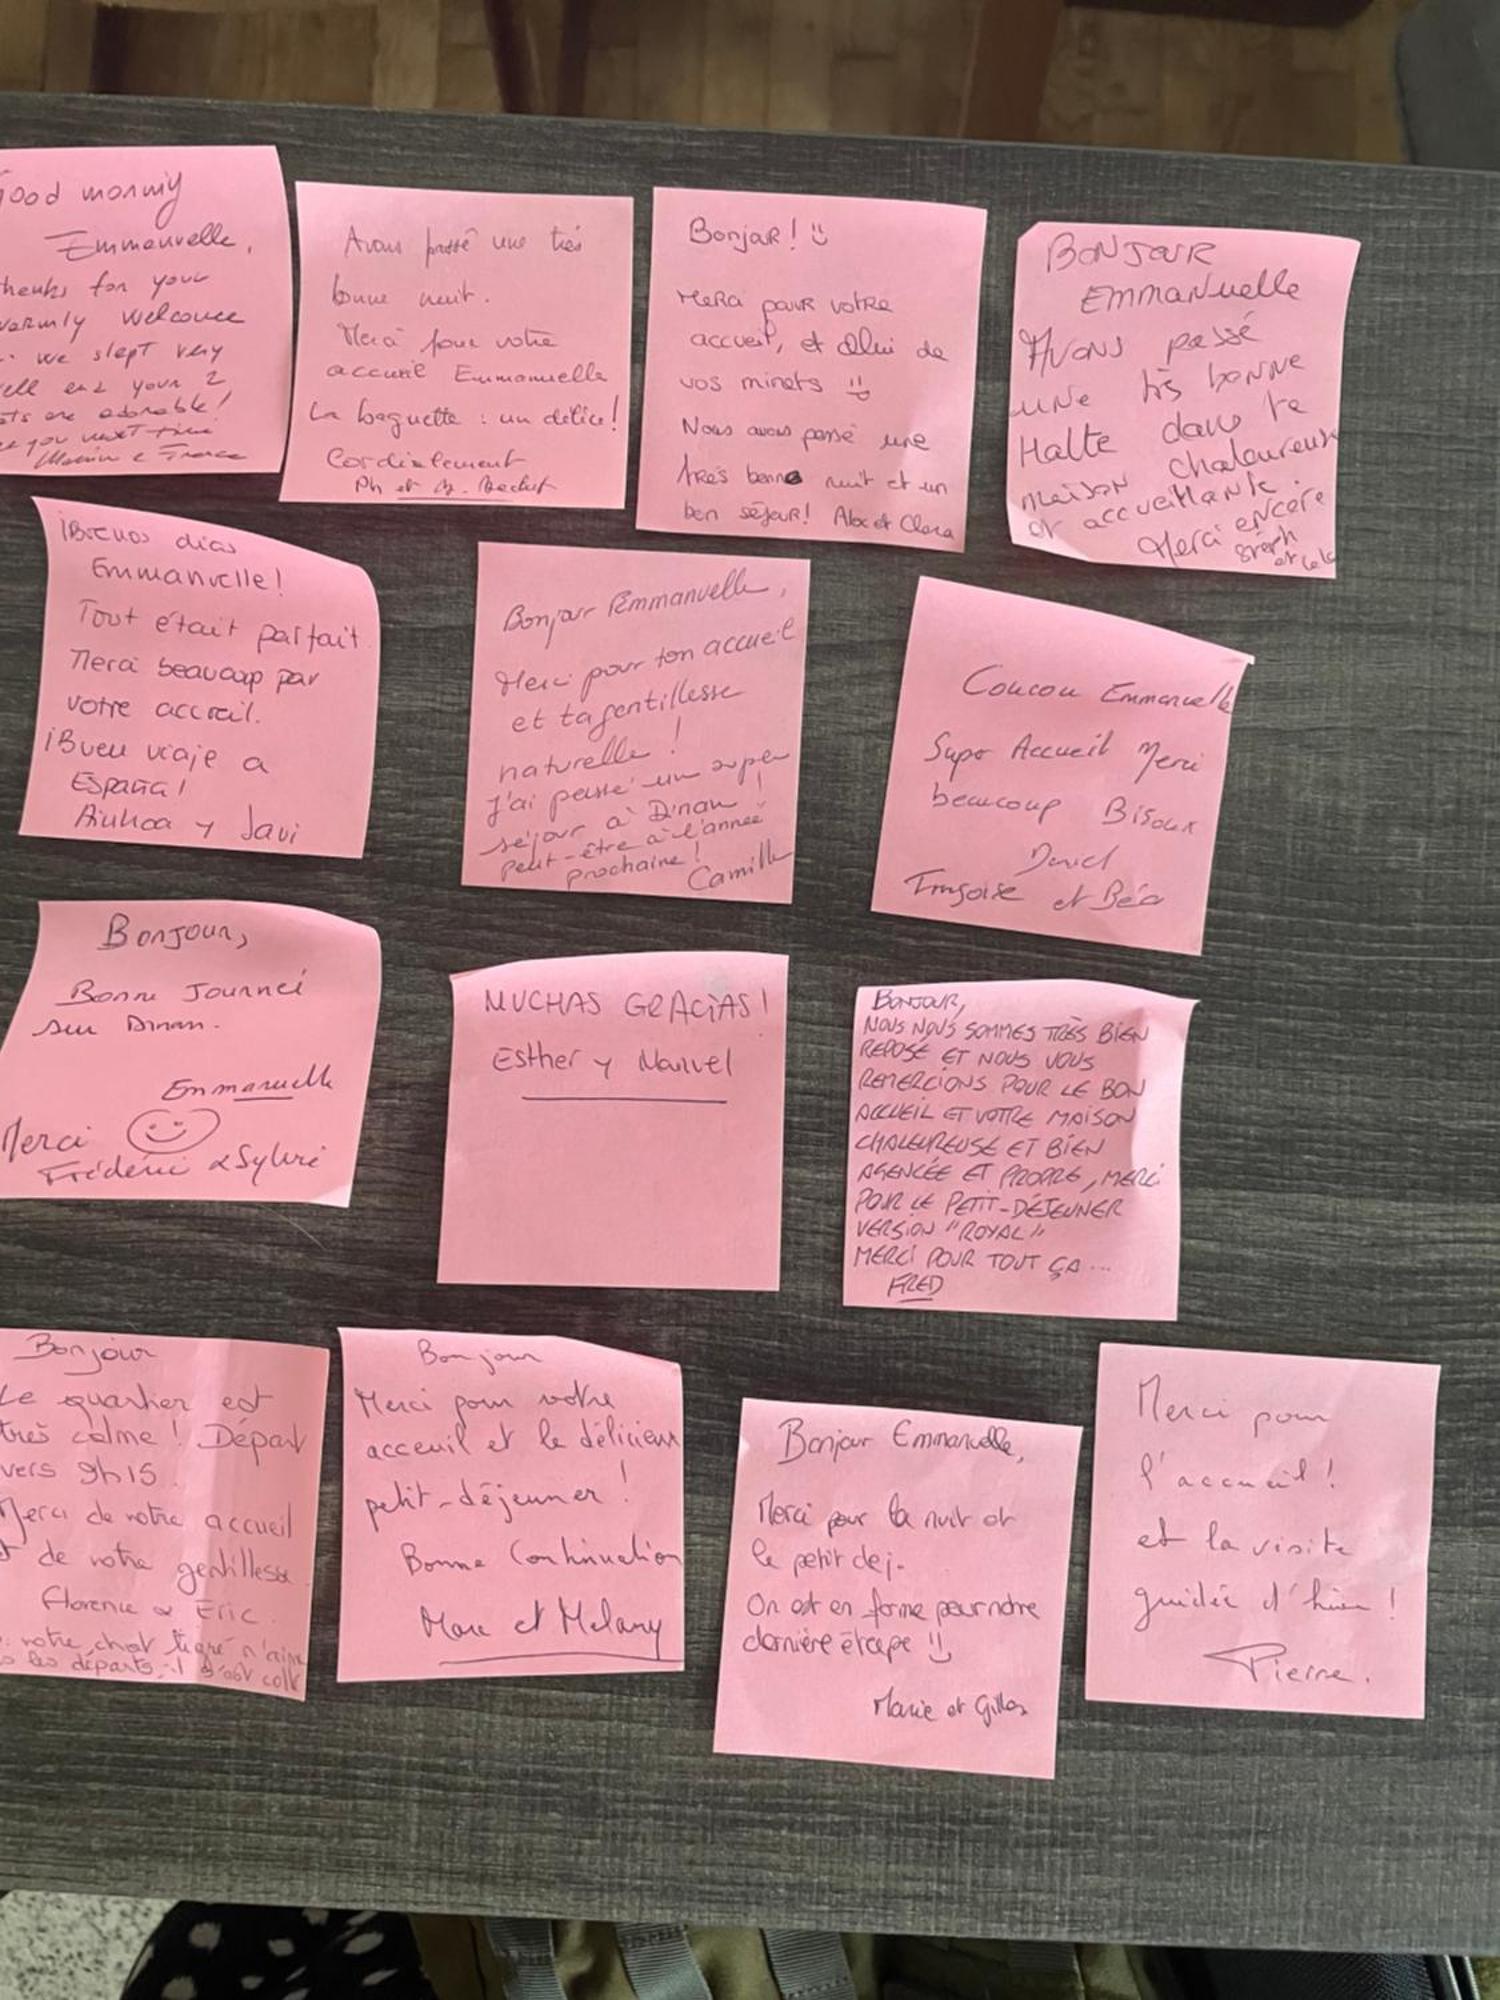 Good morning
Emmanuelle,
thanks for your
warmly welcome
we slept very
well and your 2
cats are adorable!
see you next time
Avons passé une très
bonne nuit.
Merci pour votre
accueil Emmanuelle
La baguette : un délice!
Cordialement
Ph et
Bonjour! :)
Merci pour votre
accueil, et celui de
vos minets :)
Nous avons passé une
très bonne nuit et un
bon séjour! Alex et Clara
BONJOUR
EMMANUELLE
AVONS passé
UNE très bonne
Halte dans te
maison chaleureuse
et accueillante.
Merci encore
Stéph
et
¡Buenos dias
Emmanuelle!
Tout était parfait.
Merci beaucoup par
votre accueil.
¡Buen viaje a
España!
Ainhoa y Javi
Bonjour Emmanuelle,
Merci pour ton accueil
et ta gentillesse
naturelle !
J'ai passé un super
séjour à Dinan !
peut-être à l'année
prochaine!
Camille
Coucou Emmanuelle
Super Accueil Merci
beaucoup Bisoux
Daniel
Françoise et Béa
Bonjour,
Bonne Journée
sur Dinan.
Emmanuelle
Merci
Frédéric & Sylvie
MUCHAS GRACIAS!
Esther y Manuel
BONJOUR,
NOUS NOUS SOMMES TRÈS BIEN
REPOSÉ ET NOUS VOUS
REMERCIONS POUR LE BON
ACCUEIL ET VOTRE MAISON
CHALEUREUSE ET BIEN
AGENCÉE ET PROPRE, MERCI
POUR LE PETIT-DÉJEUNER
VERSION "ROYAL"
MERCI POUR TOUT ÇA ...
FRED
Bonjour
Le quartier est
très calme ! Départ
vers 9h15.
Merci de votre accueil
et de votre gentillesse.
Florence & Eric.
votre chat tigré n'aime
les départs, il s'est collé
Bonjour
Merci pour votre
acceuil et le délicieux
petit-déjeuner !
Bonne Continuation
Marc et Melany
Bonjour Emmanuelle,
Merci pour la nuit et
le petit dej.
On est en forme pour notre
dernière étape :)
Marie et Gilles
Merci pour
l'accueil !
et la visite
guidée d'hier !
Pierre.